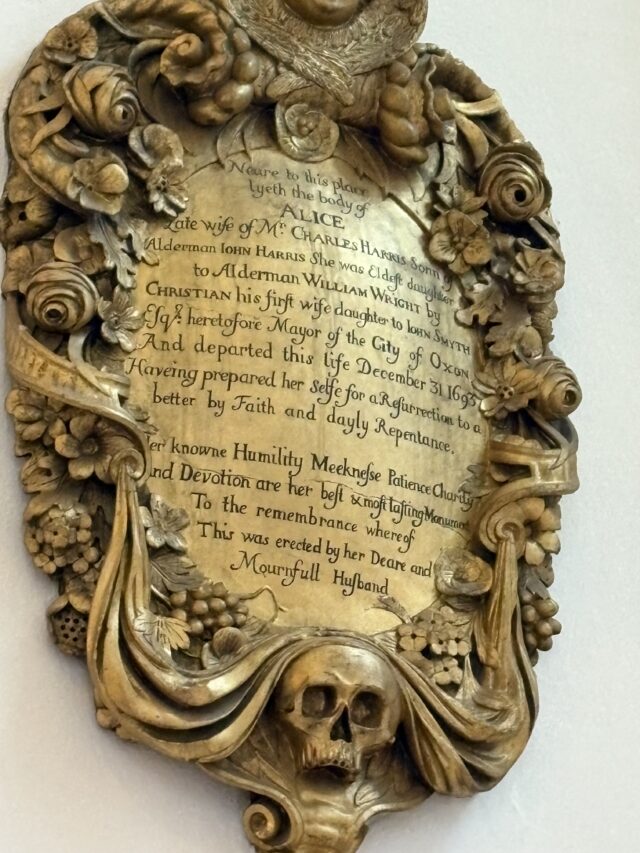 Neare to this place
lyeth the body of
ALICE
Late wife of Mr CHARLES HARRIS Sonn
Alderman IOHN HARRIS She was Eldest daughter
to Alderman WILLIAM WRIGHT by
CHRISTIAN his first wife daughter to IOHN SMYTH
Esqr. heretofore Mayor of the City of Oxon
And departed this life December 31 1693
Haveing prepared her selfe for a Resurrection to a
better by Faith and dayly Repentance.
Her knowne Humility Meeknesse Patience Charity
And Devotion are her best & most lasting Monument
To the remembrance whereof
This was erected by her Deare and
Mournfull Husband